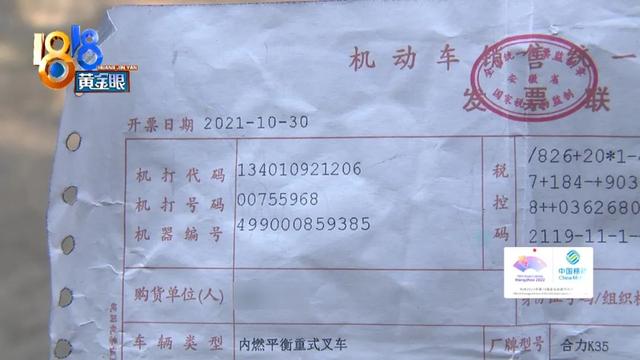 1818
黄金眼
机动车销售统一
发票联
全国统一发票监制章
安徽省
国家税务局监制
开票日期 2021-10-30
机打代码 134010921206
机打号码 00755968
机器编号 499000859385
税控码
/826+20*1-
7+184-+903
8++0362680
2119-11-1-
Hangzhou 2022
中国移动
China Mo
购货单位(人)
车辆类型 内燃平衡重式叉车
厂牌型号 合力K35